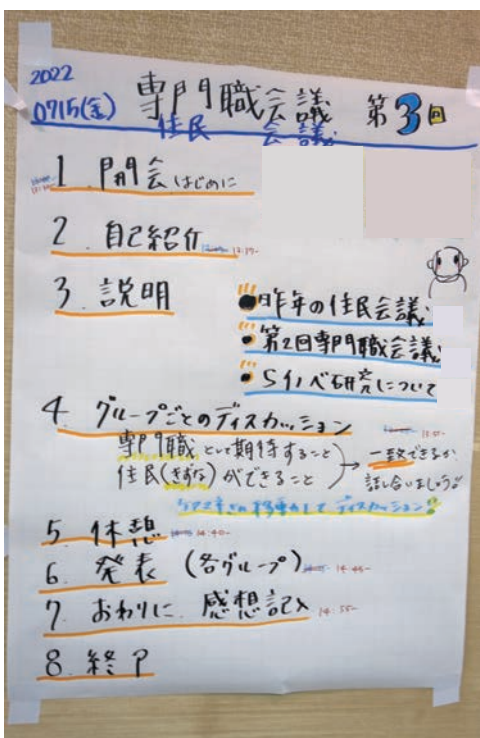 2022
07/15(金) 専門職会議 第3回
住民 会議
1 開会 はじめに
2. 自己紹介 13:17-
3. 説明
昨年の住民会議
第2回専門職会議
Sイノベ研究について
4. グループごとのディスカッション
専門職として期待すること
住民(きずな)ができること
→ 一致できるか
話し合いましょう!!
移動して ディスカッション!
5. 休憩 14:40-
6. 発表 (各グループ) 14:45-
7. おわりに. 感想記入 14:55-
8. 終了